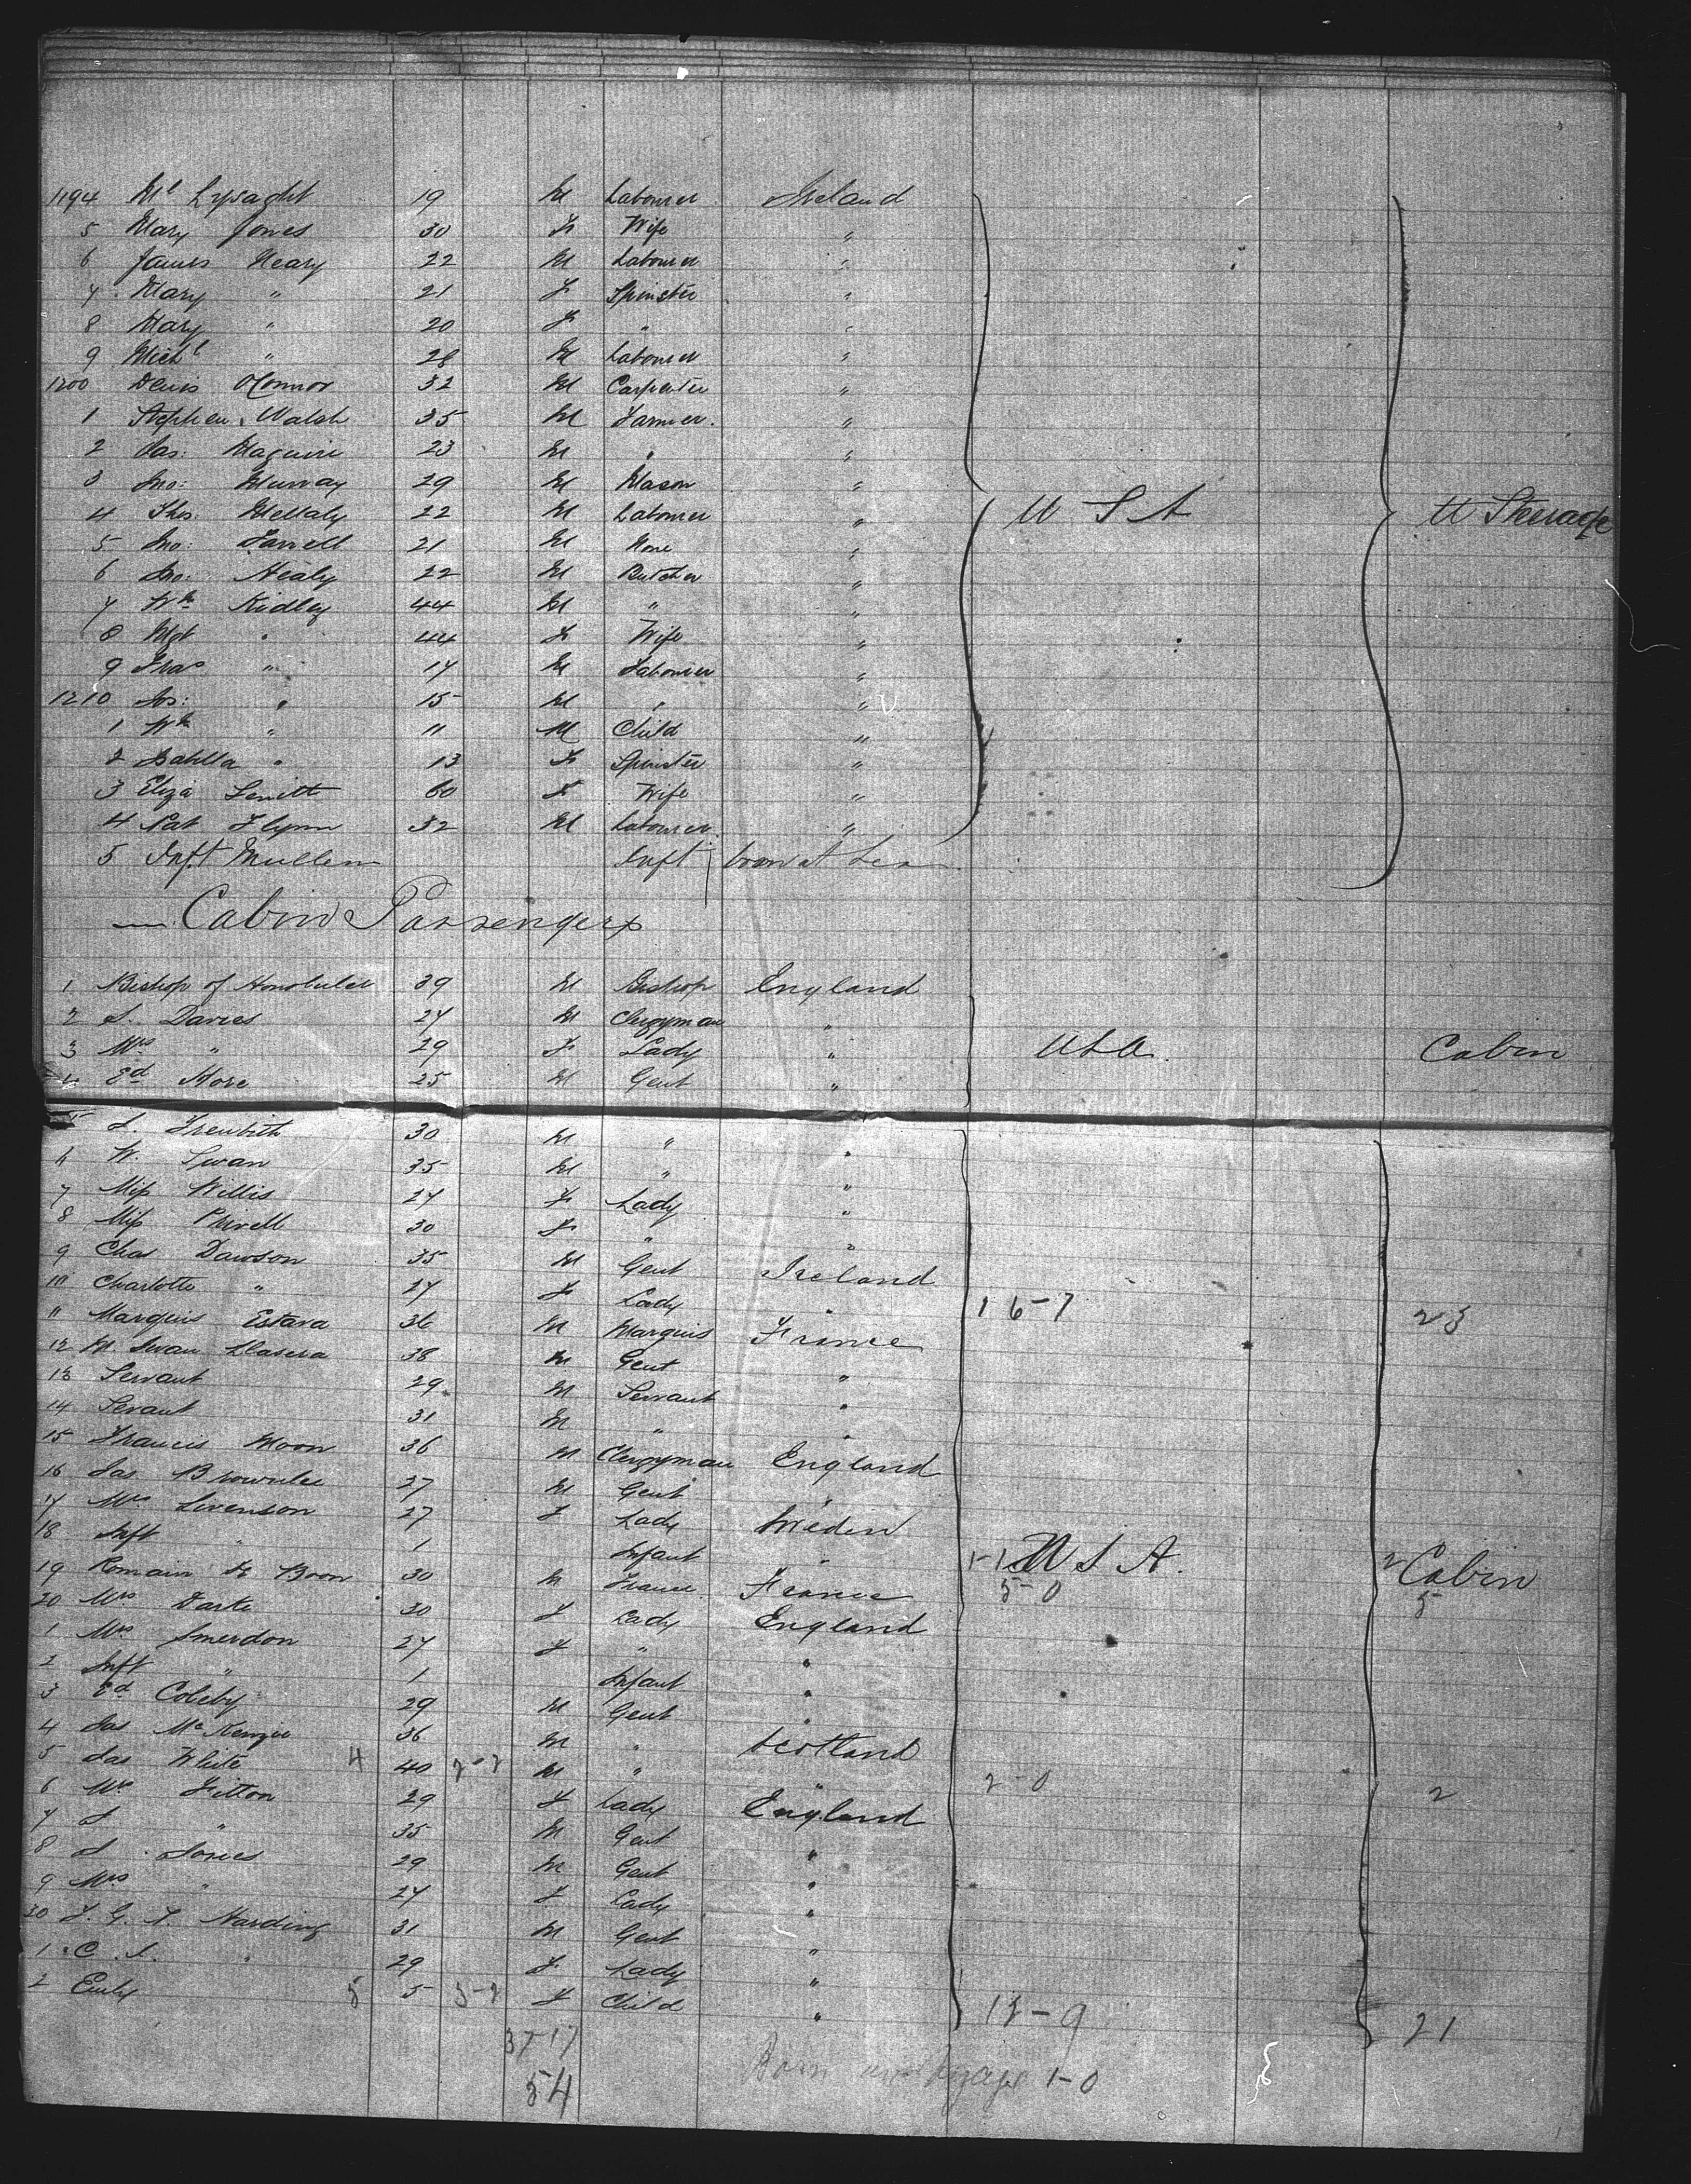 1194 Ml Lysaght 19 M Labourer Ireland
5 Mary Jones 30 F Wife "
6 James Neary 22 M Labourer "
7 Mary " 21 F Spinster "
8 Mary " 20 F " "
9 Michl " 28 M Labourer "
1200 Denis OConnor 32 M Carpenter "
1 Stephen Walsh 35 M Farmer "
2 Jas: Maguire 23 M " "
3 Jno: Murray 29 M Mason "
4 Thos: 22 M Labourer " U S A U Steerage
5 Jno: Farrell 21 M None "
6 Jno: Nealy 22 M Butcher "
7 Wm Ridley 44 M " "
8 Mgt " 44 F Wife "
9 Fras " 17 M Labourer "
1210 Jos: " 15 M " "
1 Wm " 11 M Child "
2 Isablla " 13 F Spinster "
3 Eliza 60 F Wife "
4 Pat Flynn 32 M Labourer "
5 Inft Mullen Inft born at Sea
Cabin Passengers
1 Bishop of Honolulu 39 M Bishop England
2 S. Davies 27 M Clergyman "
3 Mrs " 29 F Lady " USA. Cabin
4 Ed Hore 25 M Gent "
5 30 M " "
6 W. Swan 35 M " "
7 Miss Willis 27 F Lady "
8 Miss 30 F " "
9 Chas Dawson 35 M Gent Ireland
10 Charlotte " 27 F Lady " 16-7 23
11 Marquis Estava 36 M Marquis France
12 M 38 M Gent "
13 Servant 29 M Servant "
14 Servant 31 M " "
15 Francis Moon 36 M Clergyman England
16 Jas Brownlee 27 M Gent "
17 Mrs Swenson 27 F Lady Sweden
18 Inft " 1 Infant " 1-1 U S A. 2 Cabin
19 Romain De Boon 30 M France France 5-0 5
20 Mrs Darke 30 F Lady England
1 Mrs Smerdon 27 F " "
2 Inft " 1 Infant "
3 Ed Coleby 29 M Gent "
4 Jas McKenzie 36 M " Scotland
5 Jas White 4 40 2-2 M " " 2-0 2
6 Mrs Fitton 29 F Lady England
7 S " 35 M Gent "
8 S. Jones 29 M Gent "
9 Mrs " 27 F Lady "
30 F. G. T. Harding 31 M Gent "
1 C. S. " 29 F Lady "
2 Emly 5 5 3-2 F Child " 12-9 21
37 17
54
Born on voyage 1-0